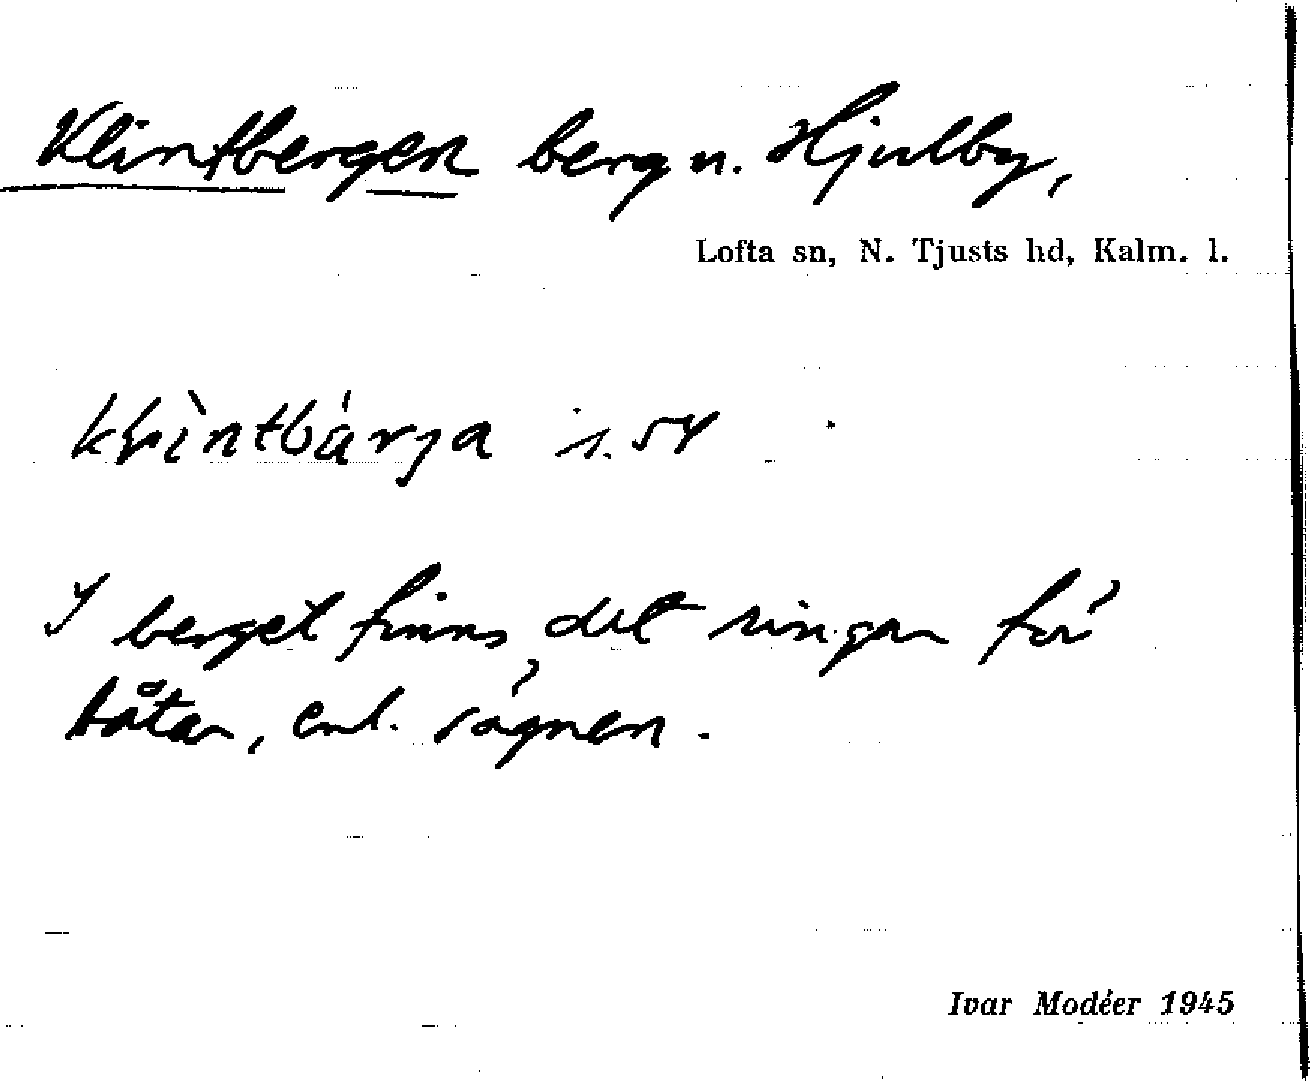 Klintbergen berg n. Hjulby,
Lofta sn, N. Tjusts hd, Kalm. l.
klìntbárja s. 54
I berget finns det ringar för
båtar, enl. sägnen.
Ivar Modéer 1945